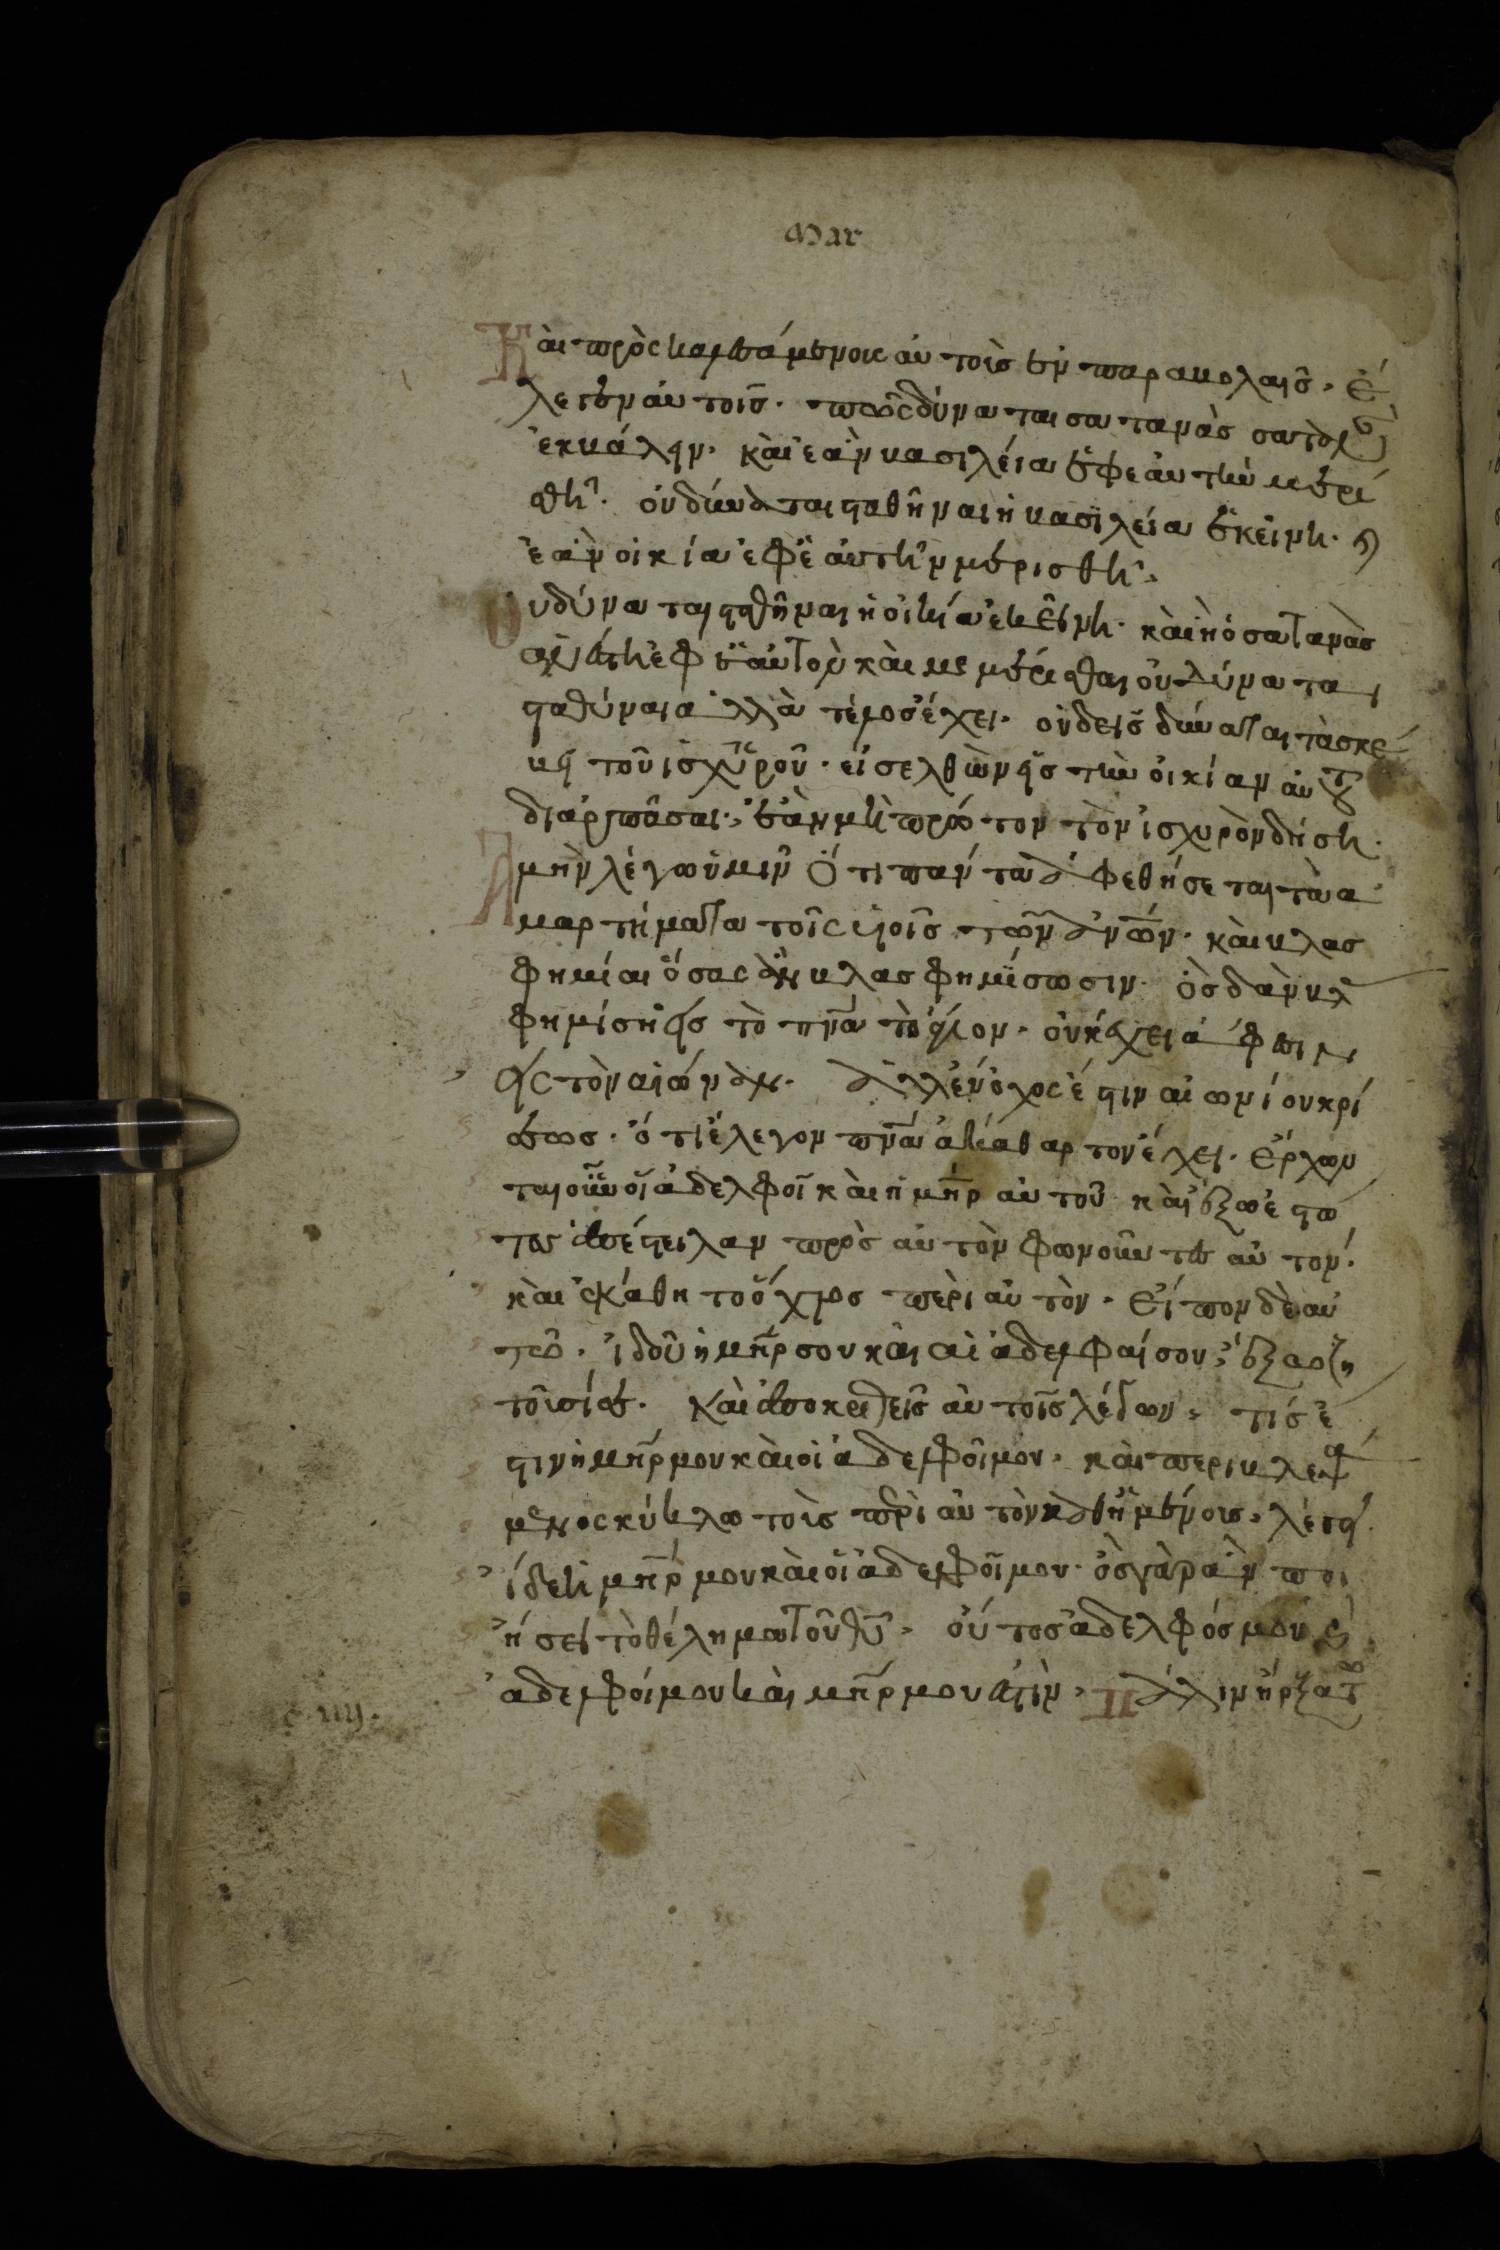 Mar
Καὶ προσκαλεσάμενος αὐτοὺς ἐν παραβολαῖς. ἔ
λεγεν αὐτοῖς. πῶς δύναται σατανὰς σατανᾶν
ἐκβάλειν. καὶ ἐὰν βασιλεία ἐφ ἑαυτὴν μερι
σθῆ. οὐ δύναται σταθῆναι ἡ βασιλεία ἐκείνη. καὶ
ἐὰν οἰκία ἐφ ἑαυτὴν μερισθῆ.
Οὐ δύναται σταθῆναι ἡ οἰκία ἐκείνη. καὶ ὁ σατανὰς
ἀνέστη ἐφ ἑαυτοὺ καὶ μεμέρισθαι οὐ δύναται
σταθύναι ἀλλὰ τέλος ἔχει. οὐδεὶς δύναται τὰ σκε
βη τοῦ ἰσχυροῦ. εἰσελθὼν εἰς τὴν οἰκίαν αὐτοῦ
διαρπᾶσαι. ἐὰν μὴ πρῶτον τὸν ἰσχυρὸν δήση.
Ἀμὴν λέγω ὑμῖν ὅτι πάντα ἀφεθήσεται τὰ ἁ
μαρτήματα τοῖς υἱοῖς τῶν ἀνων. καὶ βλασ
φημίαι ὅσας ἂν βλασφημίσωσιν. ὃς δ ὰν βλ
φημίση εἰς τὸ πνα τὸ ἅγιον. οὐκ ἔχει ἄφεσιν
εἰς τὸν αἰῶναν. ἀλλ ἔνοχος ἔστιν αἰωνίου κρί
σεως. ὅτι ἔλεγον πνα ἀκάθαρτον ἔχει. Ἔρχων
ται οὖν οἱ ἀδελφοὶ καὶ ἡ μηρ αὐτοῦ καὶ ἔξω ἑστῶ
τες ἀπέστειλαν πρὸς αὐτὸν φωνοῦντες αὐτόν.
καὶ ἐκάθητο ὄχλος περὶ αὐτὸν. Εἶπον δὲ αὐ
τῶ. ἰδοῦ ἡ μηρ σου καὶ αἱ ἀδελφαί σου ἔξω ζη
τοῦσί σε. καὶ ἀποκριθεὶς αὐτοῖς λέγων. τίς ἐ
στιν ἡ μηρ μου καὶ οἱ ἀδελφοί μου. καὶ περιβλεψά
μενος κύκλω τοὶς περὶ αὐτὸν καθημένοις. λέγει
ἴδε ἡ μηρ μου καὶ οἱ ἀδελφοί μου. ὃς γὰρ ἂν ποι
ήσει τὸ θέλημα τοῦ θυ. οὗτος ἀδελφός μου καὶ
ἀδελφοί μου καὶ μηρ μου ἐστὶν. Πάλιν ἤρξατο